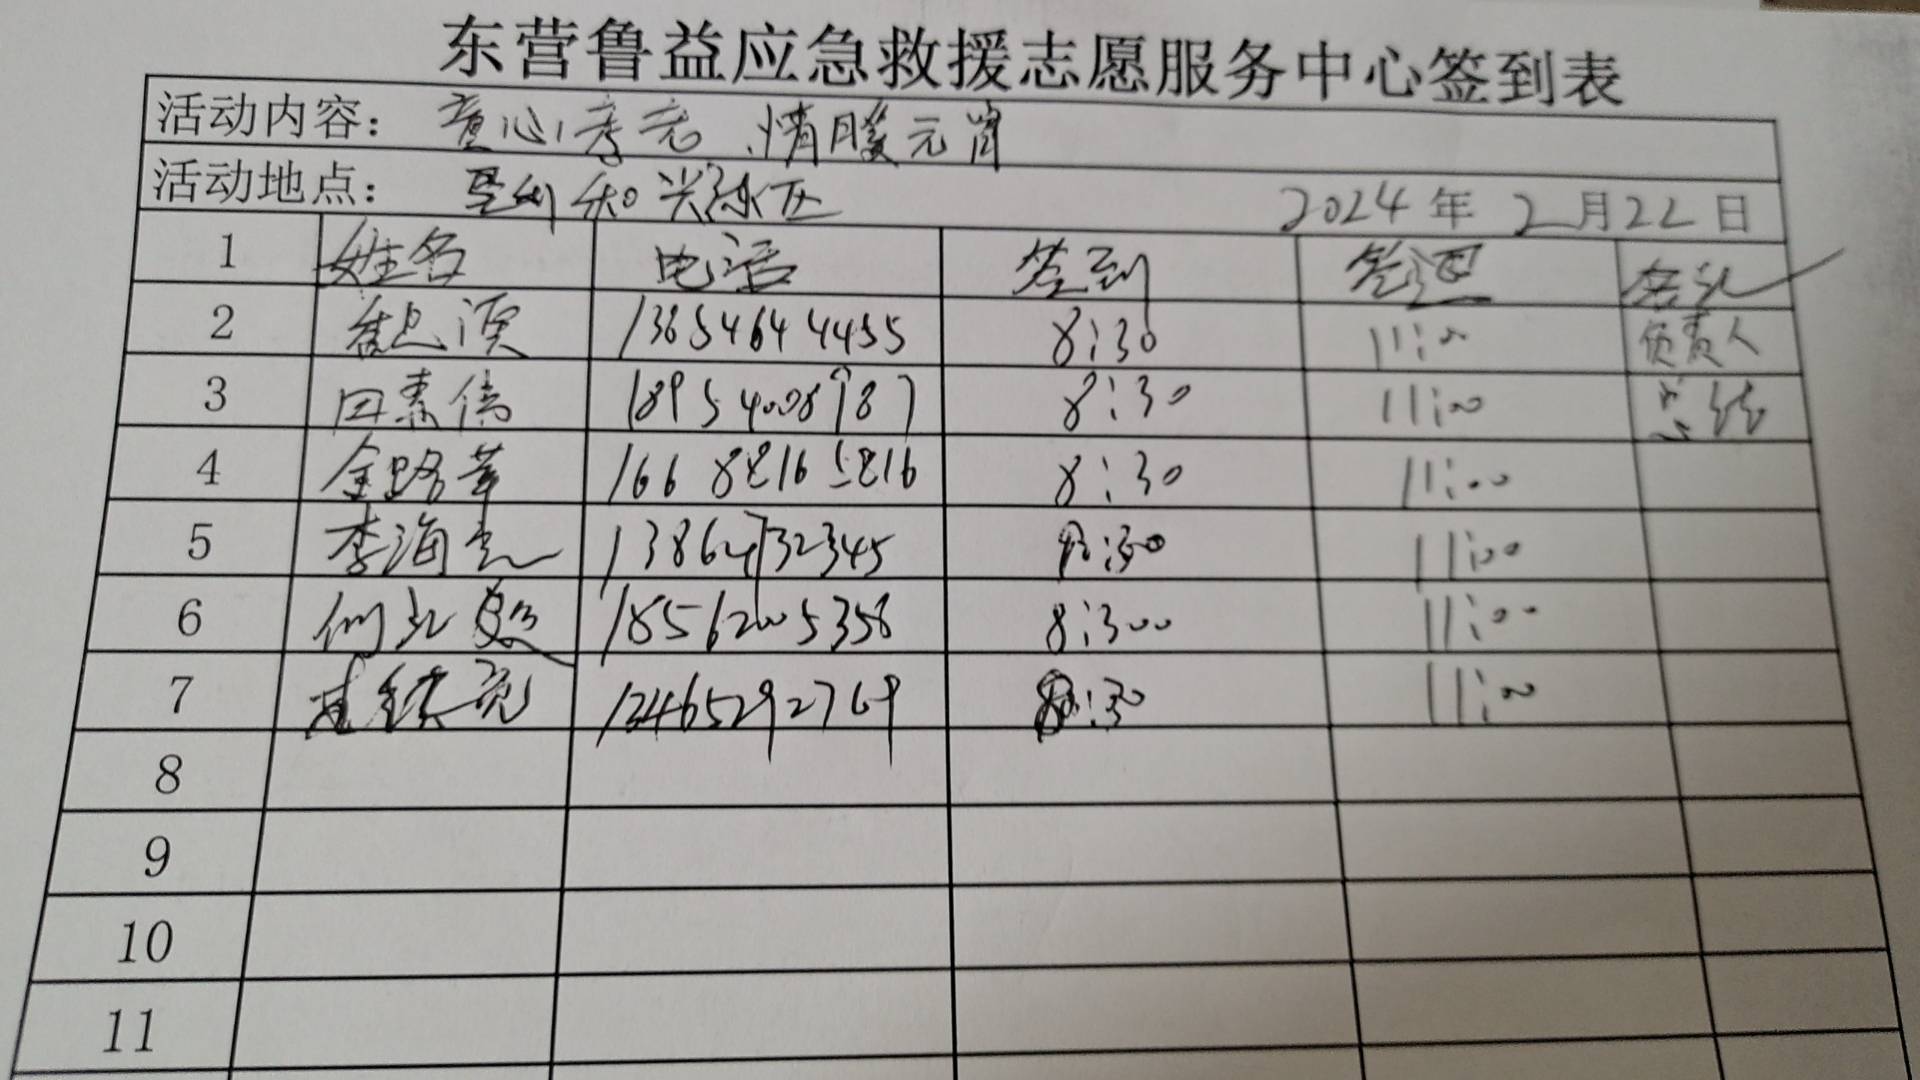 东营鲁益应急救援志愿服务中心签到表
活动内容：童心孝老、情暖元宵
活动地点： 2024年2月22日
1 姓名 电话 签到 签退 备注
2 13854644455 8:30 11:00 负责人
3 田素倩 18954008987 8:30 11:00 总结
4 金路苹 16688165816 8:30 11:00
5 李海 13864732345 8:30 11:00
6 18562005358 8:300 11:00
7 13465292769 8:30 11:00
8
9
10
11